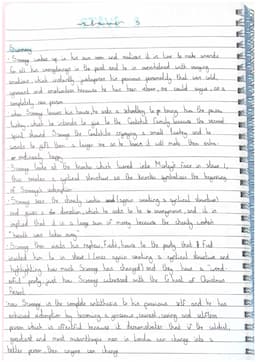 stave 5
Summary
- Scrooge wakes up in his own room and realises it is time to make amends
for all his wrongdoings in the past and he is overwhelmed with varying
emotions which instantly juxtaposes his previous personality that was cold,
and unemotional because he has been above, we could argue, as a
completely new person
- when Scrooge leaves his house, he asks a schoolboy to go bring him the poem
turkey which he intends to give to the Cratchit Family because the second
spirit showed Scrooge the Cratchits enjoying a small turkey and he
wants to gift them a larger one as he knows it will make them extra-
ordinarily happy
- Scrooge looks at the knocker which turned into Marley's Face in stave 1,
this creates a cyclical structure as the knocker symbolises the beginning
of Scrooge's redemption
- Scrooge sees the charity worker (again creating a cyclical structure)
and gives a donation which he asks to be anonymous, and it is
implied that it is a large sum of money because the charity worker's
"breath was taken away"
- Scrooge then visits his nephew, Fred's, house to the party that Fred
invited him to in stave 1 (once again creating a cyclical structure and
highlighting how much Scrooge has changed) and they have a wond-
erful party just how Scrooge witnessed with the Ghost of Christmas
Present
- now Scrooge is the complete antithesis to his previous self and he has
achieved redemption by becoming a generous, caring and selfless
person which is effective because it demonstrates that if the coldest,
and most misanthropic man in London can change into a
better person then anyone can change